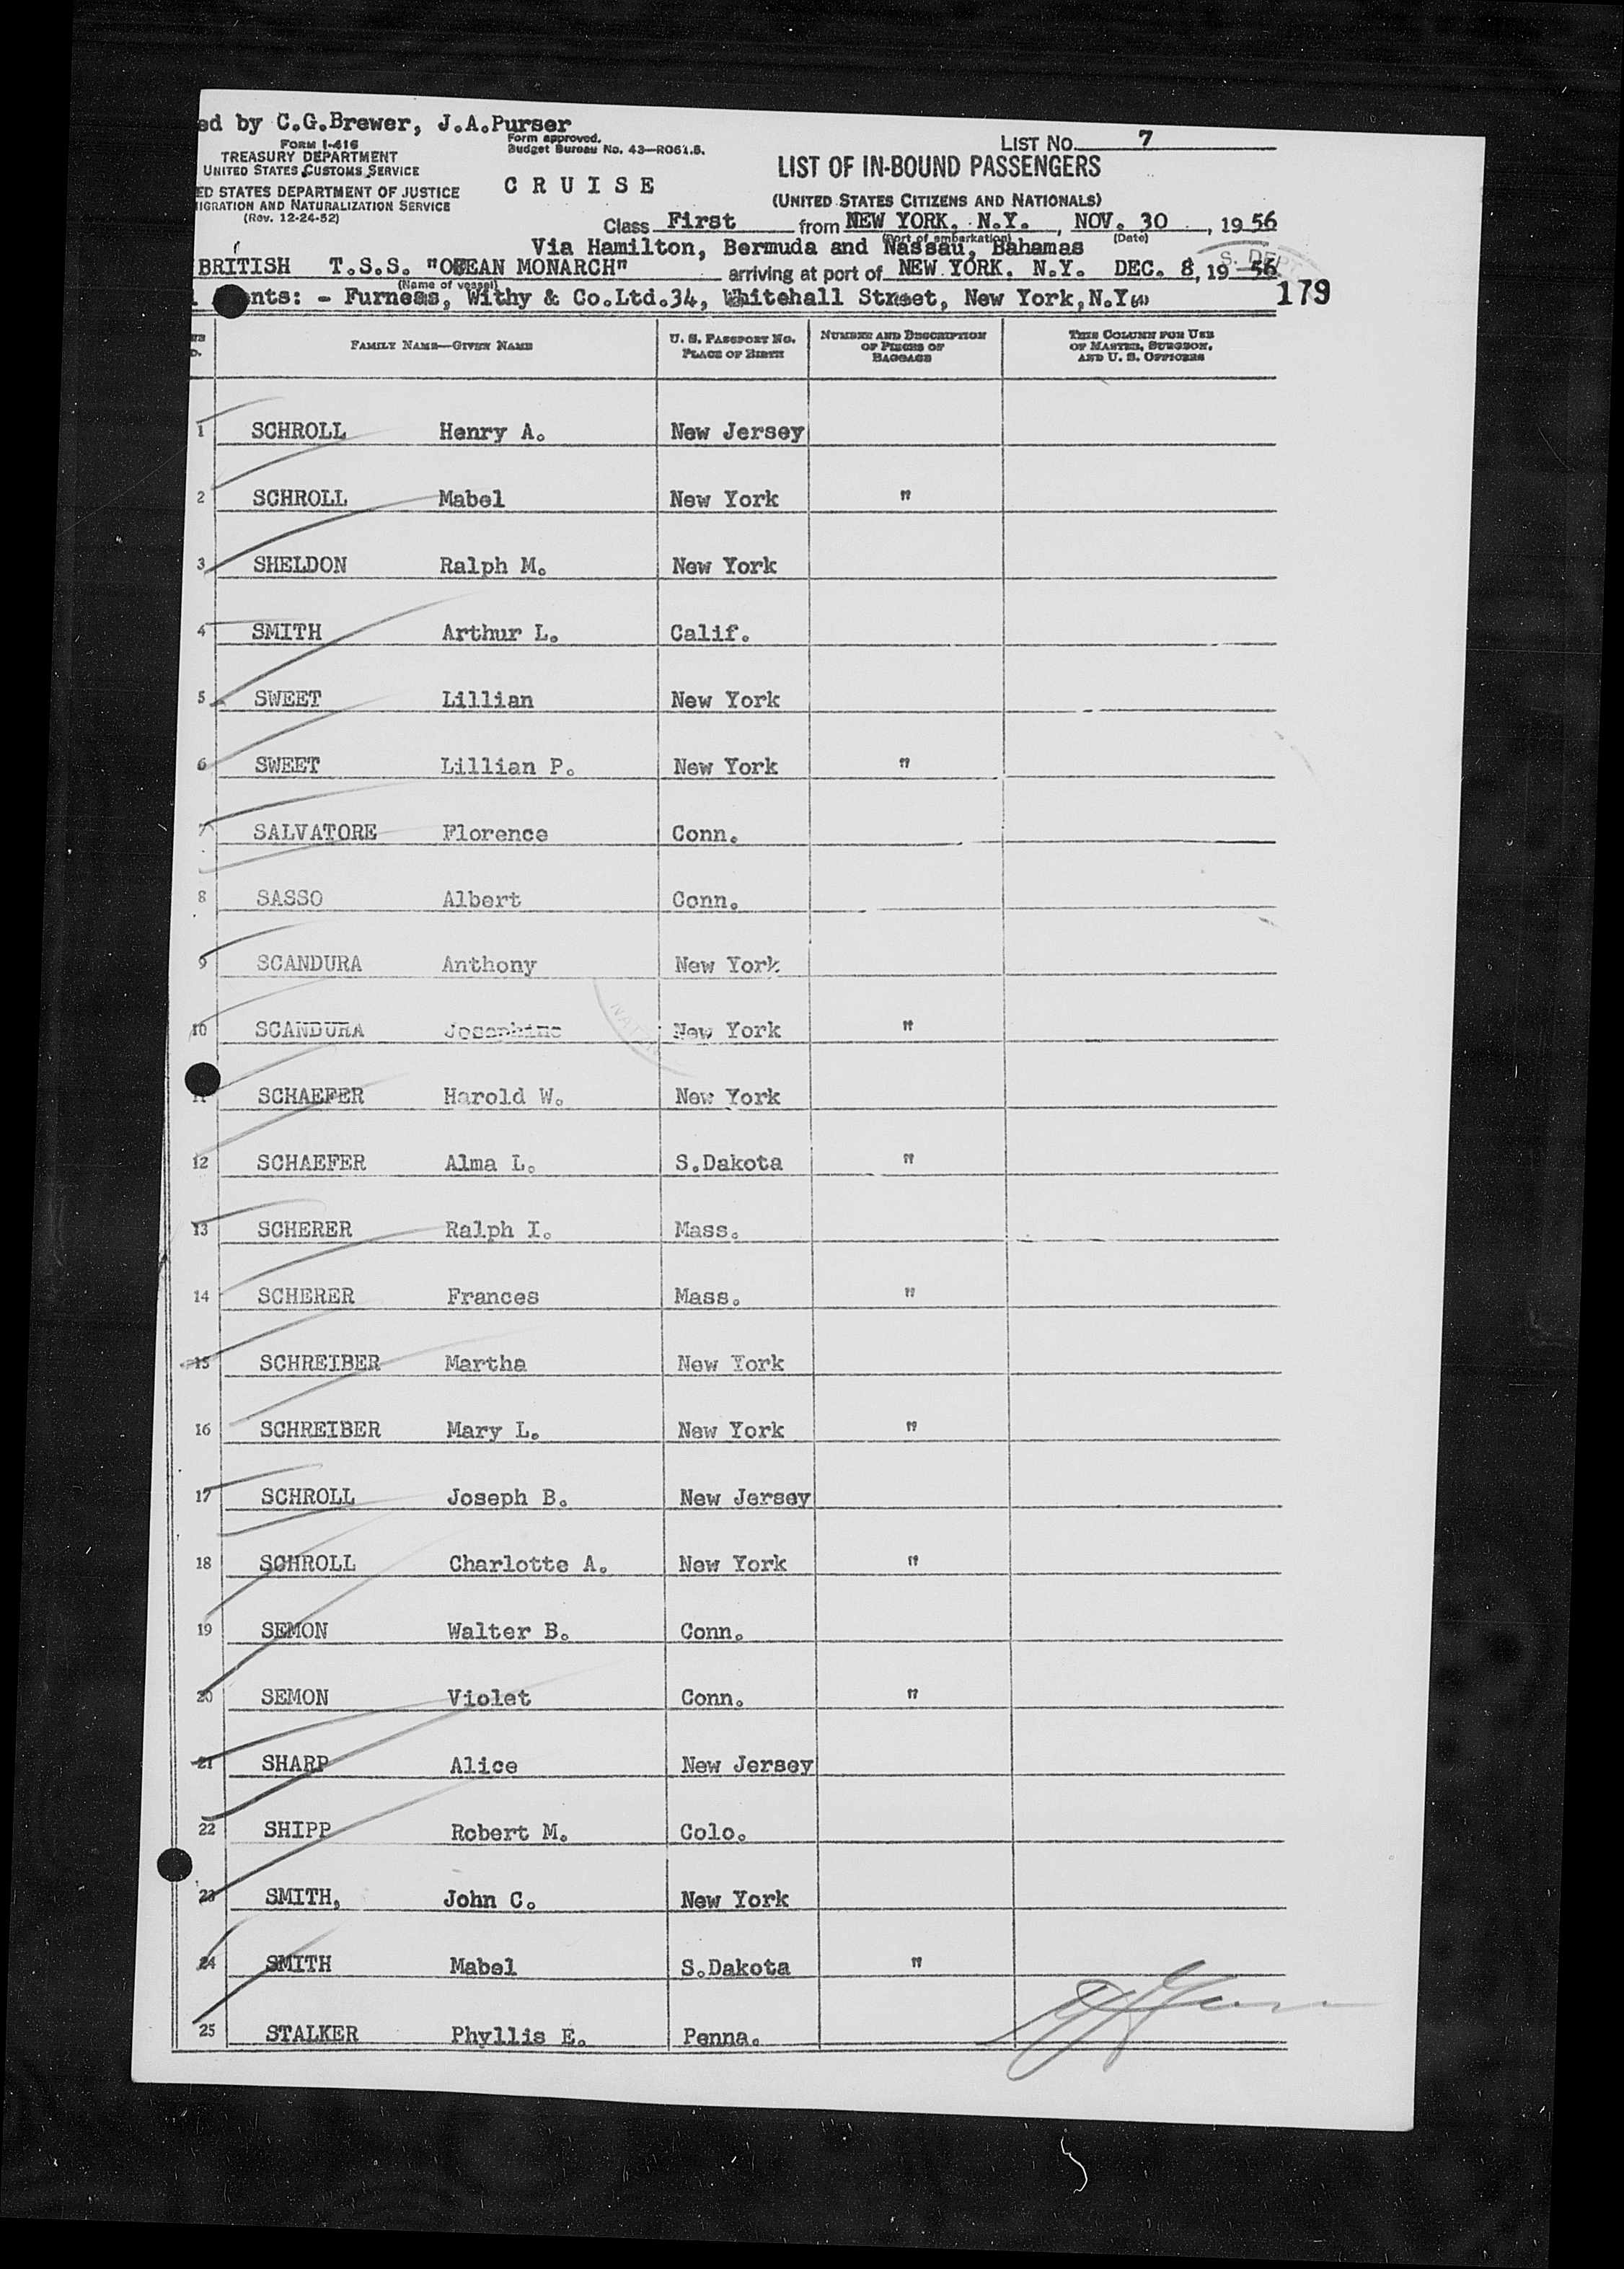 ed by C.G.Brewer, J.A.Purser
FORM I-416
TREASURY DEPARTMENT
UNITED STATES CUSTOMS SERVICE
ED STATES DEPARTMENT OF JUSTICE
IGRATION AND NATURALIZATION SERVICE
(Rev. 12-24-52)
Form approved.
Budget Bureau No. 43—R061.5.
CRUISE
LIST No. 7
LIST OF IN-BOUND PASSENGERS
(UNITED STATES CITIZENS AND NATIONALS)
Class First from NEW YORK. N.Y. , NOV. 30 , 19 56
(Port of embarkation) (Date)
Via Hamilton, Bermuda and Nassau, Bahamas
S. DEPT
BRITISH T.S.S. "OCEAN MONARCH" arriving at port of NEW YORK. N.Y. DEC. 8, 19 56
(Name of vessel)
nts: - Furness, Withy & Co.Ltd.34, Whitehall Street, New York,N.Y(4)
179
FAMILY NAME—GIVEN NAME U. S. PASSPORT NO. PLACE OF BIRTH NUMBER AND DESCRIPTION OF PIECES OF BAGGAGE THIS COLUMN FOR USE OF MASTER, SURGEON, AND U. S. OFFICERS
1 SCHROLL Henry A. New Jersey
2 SCHROLL Mabel New York "
3 SHELDON Ralph M. New York
4 SMITH Arthur L. Calif.
5 SWEET Lillian New York
6 SWEET Lillian P. New York "
7 SALVATORE Florence Conn.
8 SASSO Albert Conn.
9 SCANDURA Anthony New York
10 SCANDURA Josephine New York "
11 SCHAEFER Harold W. New York
12 SCHAEFER Alma L. S.Dakota "
13 SCHERER Ralph I. Mass.
14 SCHERER Frances Mass. "
15 SCHREIBER Martha New York
16 SCHREIBER Mary L. New York "
17 SCHROLL Joseph B. New Jersey
18 SCHROLL Charlotte A. New York "
19 SEMON Walter B. Conn.
20 SEMON Violet Conn. "
21 SHARP Alice New Jersey
22 SHIPP Robert M. Colo.
23 SMITH, John C. New York
24 SMITH Mabel S.Dakota "
25 STALKER Phyllis E. Penna.